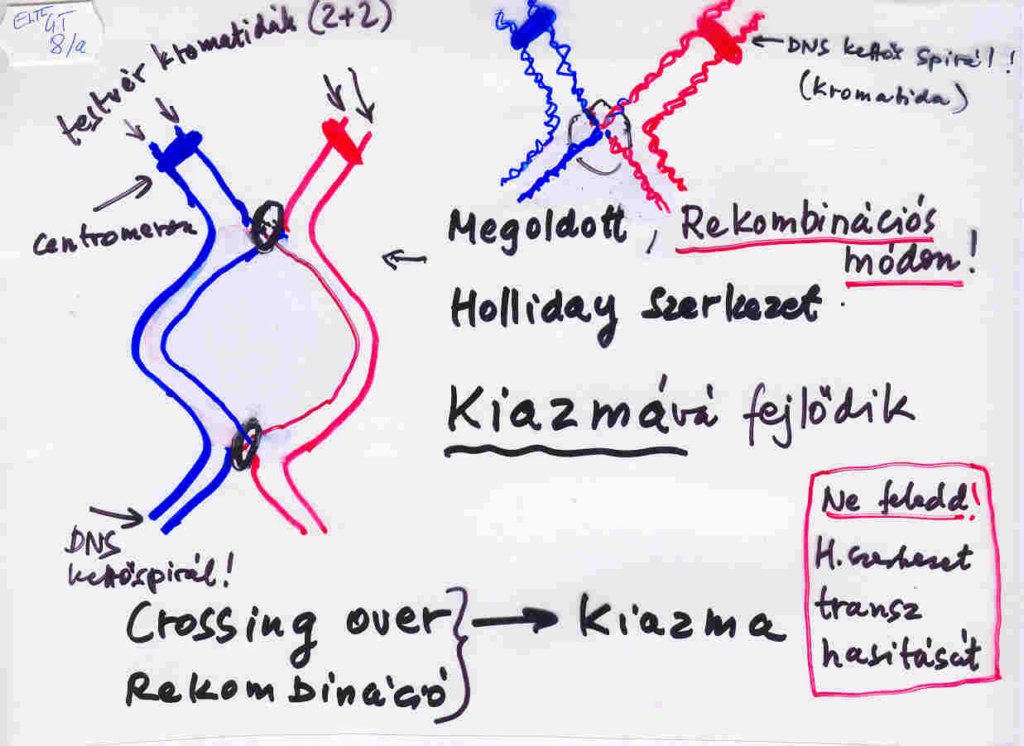 ELTE
GT
8/a
testvér kromatidák (2+2)
← DNS kettős spirál!!
(kromatida)
centromeron
Megoldott, Rekombinációs
módon!
Holliday szerkezet
Kiazmává fejlődik
DNS
kettőspirál!
Crossing over
Rekombináció
Kiazma
Ne feledd!
H. szerkezet
transz
hasítását